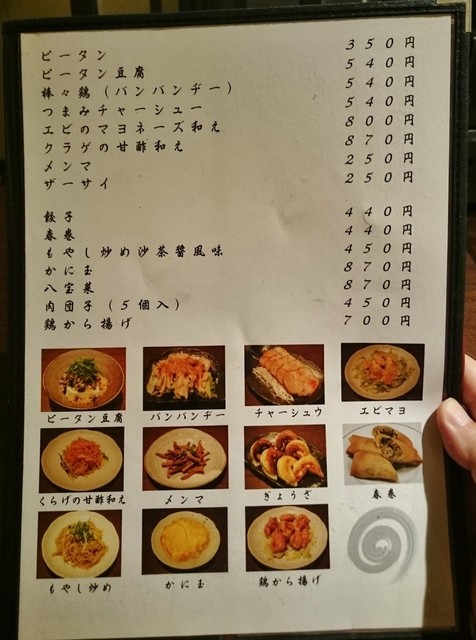 ピータン 350円
ピータン豆腐 540円
棒々鶏(バンバンヂー) 540円
つまみチャーシュー 540円
エビのマヨネーズ和え 800円
クラゲの甘酢和え 870円
メンマ 250円
ザーサイ 250円
餃子 440円
春巻 440円
もやし炒め沙茶醤風味 450円
かに玉 870円
八宝菜 870円
肉団子(5個入) 450円
鶏から揚げ 700円
ピータン豆腐 バンバンヂー チャーシュウ エビマヨ
くらげの甘酢和え メンマ ぎょうざ 春巻
もやし炒め かに玉 鶏から揚げ